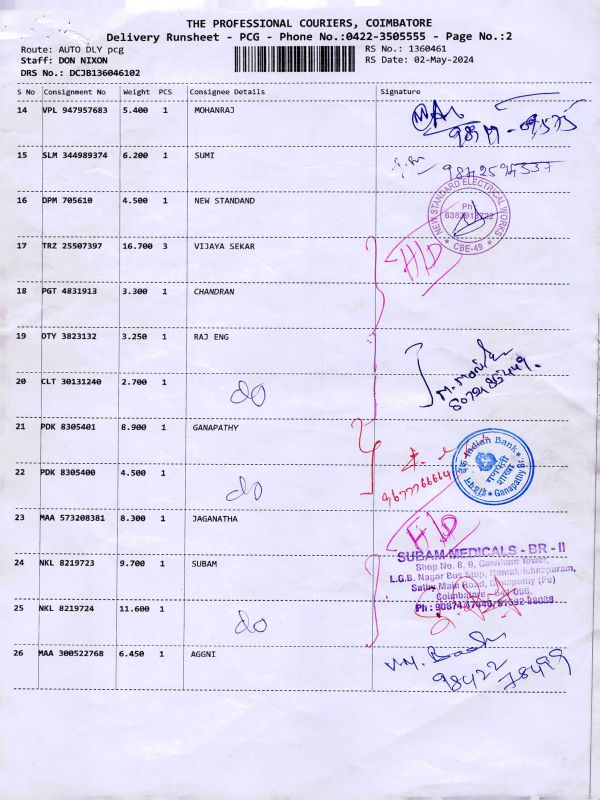 THE PROFESSIONAL COURIERS, COIMBATORE
Delivery Runsheet - PCG - Phone No.:0422-3505555 - Page No.:2
Route: AUTO DLY pcg RS No.: 1360461
Staff: DON NIXON RS Date: 02-May-2024
DRS No.: DCJB136046102
S No Consignment No Weight PCS Consignee Details Signature
14 VPL 947957683 5.400 1 MOHANRAJ
15 SLM 344989374 6.200 1 SUMI
16 DPM 705610 4.500 1 NEW STANDAND
NEW STANDARD ELECTRICAL WORKS
Ph
CBE-49
17 TRZ 25507397 16.700 3 VIJAYA SEKAR H/D
18 PGT 4831913 3.300 1 CHANDRAN
19 OTY 3823132 3.250 1 RAJ ENG
20 CLT 30131240 2.700 1 do
21 PDK 8305401 8.900 1 GANAPATHY
Indian Bank
गणपती
शाखा
Ganapathy Br.
22 PDK 8305400 4.500 1 do
23 MAA 573208381 8.300 1 JAGANATHA H/D
24 NKL 8219723 9.700 1 SUBAM
SUBAM MEDICALS - BR - II
Shop No. 8, 9, Gowtham Tower,
L.G.B. Nagar Bus Stop, Ramakrishnapuram,
Sathy Main Road, Ganapathy (Po)
Coimbatore - 641 006.
25 NKL 8219724 11.600 1 do
26 MAA 300522768 6.450 1 AGGNI
98422
78499